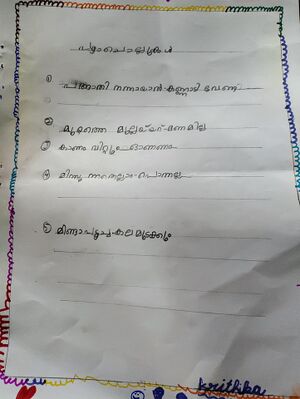 പഴഞ്ചൊല്ലുകൾ
① ചങ്ങാതി നന്നായാൽ കണ്ണാടി വേണ്ട
② മുറ്റത്തെ മുല്ലയ്ക്ക് മണമില്ല
③ കാണം വിറ്റും ഓണം ഉണ്ണണം
④ മിന്നുന്നതെല്ലാം പൊന്നല്ല
⑤ മിണ്ടാപ്പൂച്ച കലമുടക്കും
krithika